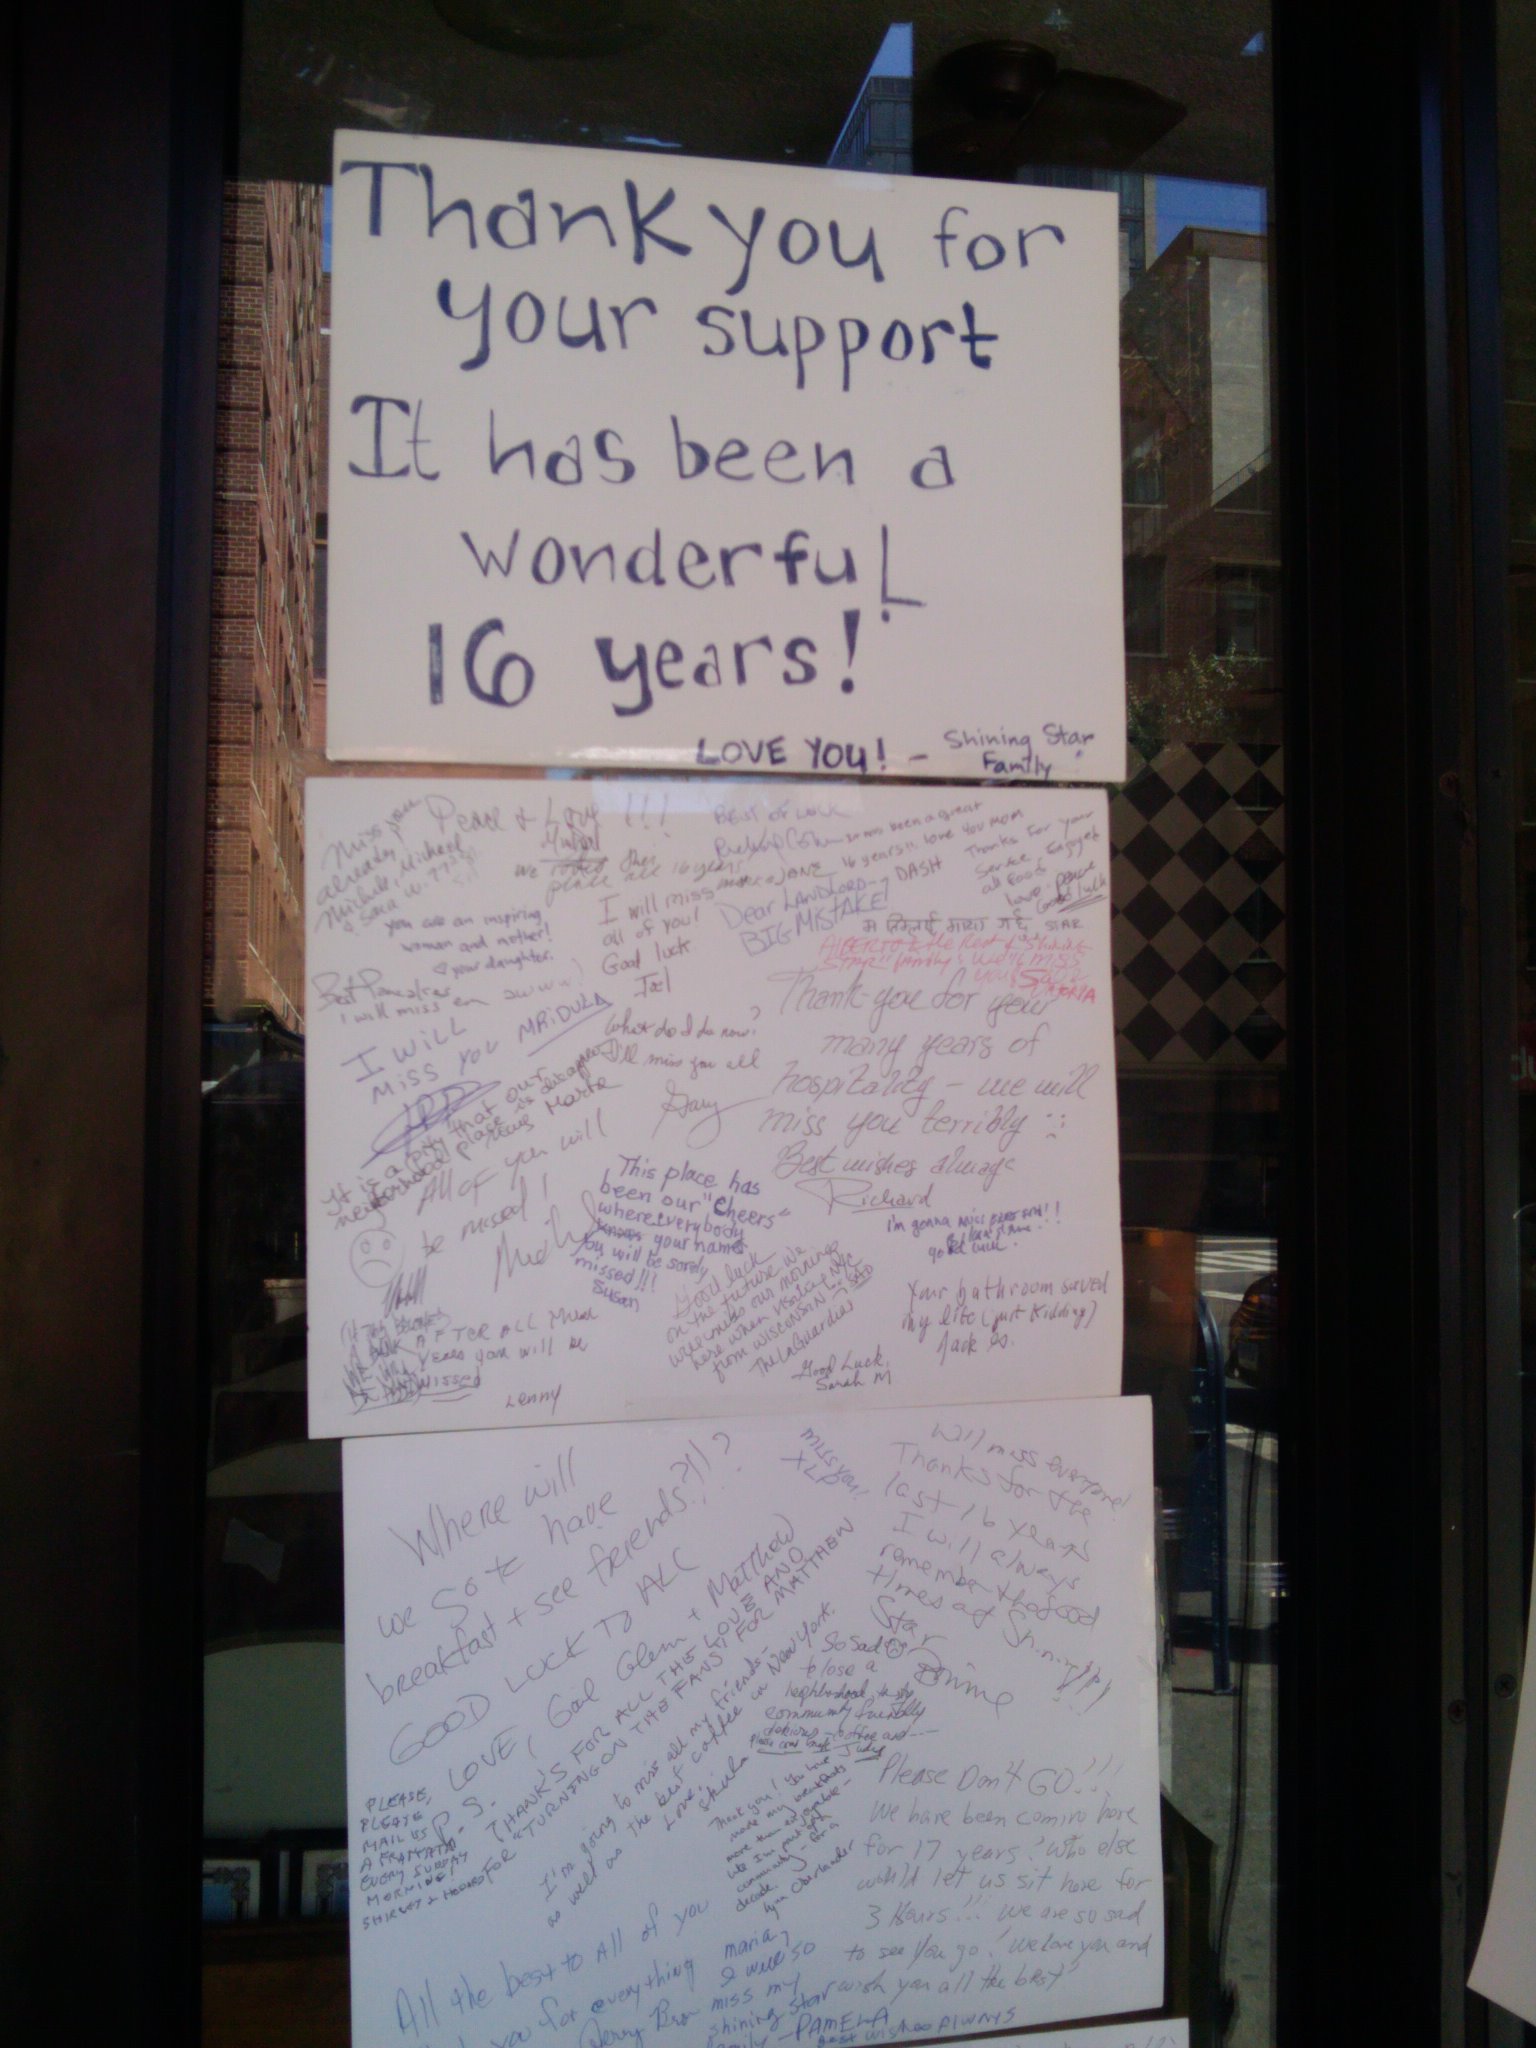 Thank you for
your support
It has been a
wonderful
16 years!
LOVE YOU! - Shining Star
Family
Miss you
already
Michele, Michael
Peace & Love !!!
BEST OF LUCK
been a great
16 years!! Love you mom
DASH
place all 16 years
I will miss
all of you!
Good luck
Joel
Dear LANDLORD -
BIG MISTAKE!
Thanks for your
Service. Enjoyed
all Food.
love - peace
Good luck
you are an inspiring
woman and mother!
your daughter.
STAR
ALBERTO & the Rest of "Shining
Star" family
Best Pancakes
I will miss em awww!
I WILL
MISS YOU MRIDULA
What do I do now?
I'll miss you all
Gary
Thank you for your
many years of
hospitality - we will
miss you terribly
Best wishes always
Richard
It is a pity that our
neighborhood place is disappearing
Marta
All of you will
be missed!
This place has
been our "Cheers"
where everybody
knows your name
You will be sorely
missed!!!
Susan
I'm gonna miss
good luck.
Good luck
in the future we
here when visiting NYC
from WISCONSIN
The LaGuardias
Your bathroom saved
my life (just kidding)
Jack G.
AFTER ALL these
Years you will be
Missed
Lenny
Good Luck,
Sarah M
Where will
we go to have
breakfast + see friends?!!?
GOOD LUCK TO ALL
LOVE, Gail Glenn + Matthew
P.S. THANKS FOR ALL THE LOVE AND
FOR "TURNING ON THE FANS" FOR MATTHEW
MISS YOU!
XLP
Will miss everyone!
Thanks for the
last 16 years
I will always
remember the good
times at Shining
Star
PLEASE,
PLEASE
MAIL US
A FRITTATA
EVERY SUNDAY
MORNING!
I'm going to miss all my friends -
as well as the best coffee in New York.
Love,
So sad
to lose a
neighborhood, tasty
community friendly
delicious coffee and
Please come back Judy
Thank you! You have
made my breakfasts
more than enjoyable -
like I'm part of a
community - for a
decade.
Lynn Oberlander
Please Don't GO!!!
We have been coming here
for 17 years! Who else
would let us sit here for
3 Hours!!! We are so sad
to see you go! We love you and
wish you all the best!
All the best to All of you
you for everything
Maria,
I will so
miss my
Shining Star
family - PAMELA
Best wishes Always